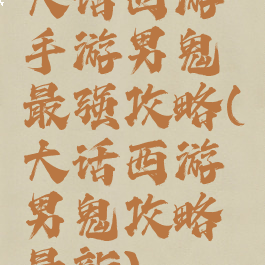 大话西游
手游男鬼
最强攻略(
大话西游
男鬼攻略
最新)